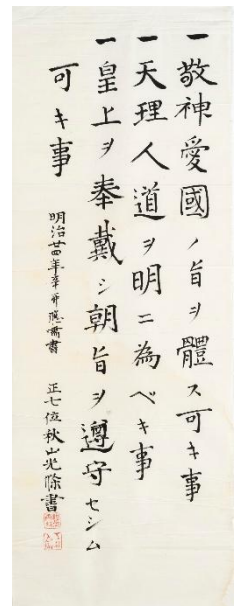 一敬神愛國ノ旨ヲ體ス可キ事
一天理人道ヲ明ニ為ベキ事
一皇上ヲ奉戴シ朝旨ヲ遵守セシム
可キ事
明治廿四年辛卯應嘱書 正七位秋山光條書